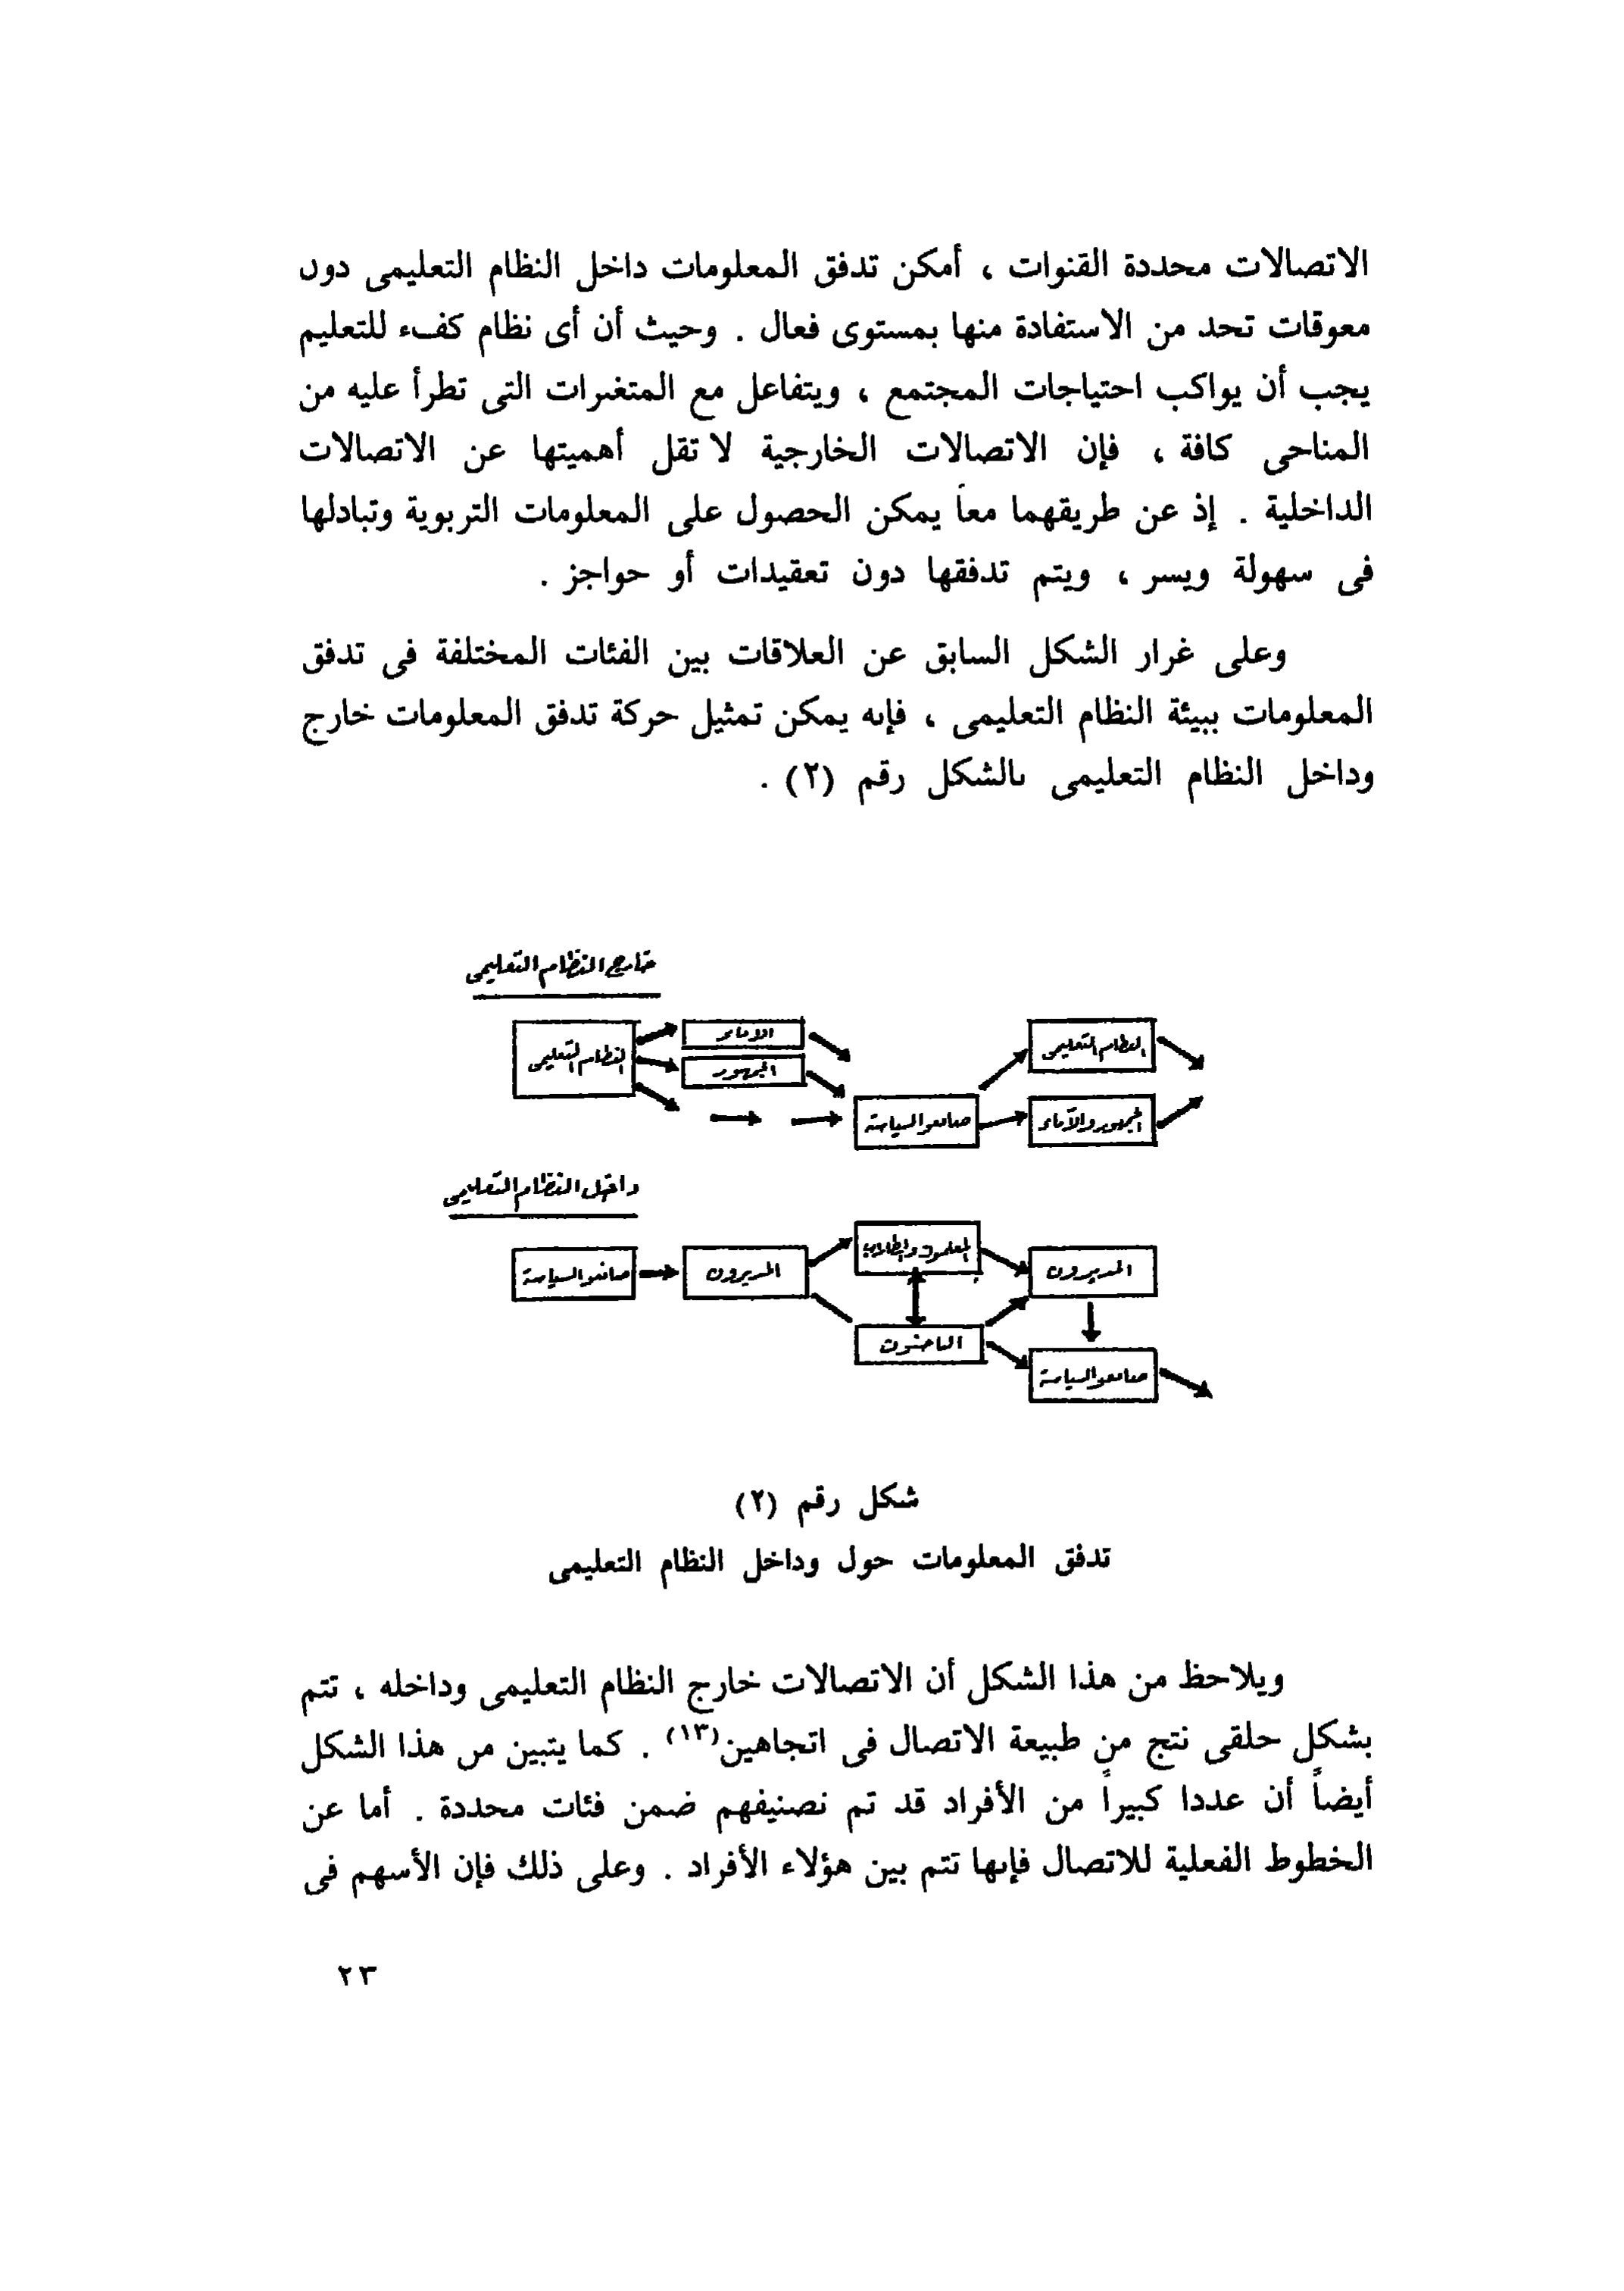 الاتصالات محددة القنوات ، أمكن تدفق المعلومات داخل النظام التعليمى دون
معوقات تحد من الاستفادة منها بمستوى فعال . وحيث أن أى نظام كفء للتعليم
يجب أن يواكب احتياجات المجتمع ، ويتفاعل مع المتغيرات التى تطرأ عليه من
المناحى كافة ، فإن الاتصالات الخارجية لا تقل أهميتها عن الاتصالات
الداخلية . إذ عن طريقهما معاً يمكن الحصول على المعلومات التربوية وتبادلها
فى سهولة ويسر ، ويتم تدفقها دون تعقيدات أو حواجز .
وعلى غرار الشكل السابق عن العلاقات بين الفئات المختلفة فى تدفق
المعلومات ببيئة النظام التعليمى ، فإنه يمكن تمثيل حركة تدفق المعلومات خارج
وداخل النظام التعليمى بالشكل رقم (٢) .
خارج النظام التعليمى
النظام التعليمى
الآباء
الجمهور
صانعو السياسة
النظام التعليمى
الجمهور والآباء
داخل النظام التعليمى
صانعو السياسة
المديرون
المعلمون والطلاب
الباحثون
المديرون
صانعو السياسة
شكل رقم (٢)
تدفق المعلومات حول وداخل النظام التعليمى
ويلاحظ من هذا الشكل أن الاتصالات خارج النظام التعليمى وداخله ، تتم
بشكل حلقى نتج من طبيعة الاتصال فى اتجاهين(١٣) . كما يتبين من هذا الشكل
أيضاً أن عددا كبيراً من الأفراد قد تم تصنيفهم ضمن فئات محددة . أما عن
الخطوط الفعلية للاتصال فإنها تتم بين هؤلاء الأفراد . وعلى ذلك فإن الأسهم فى
٢٣